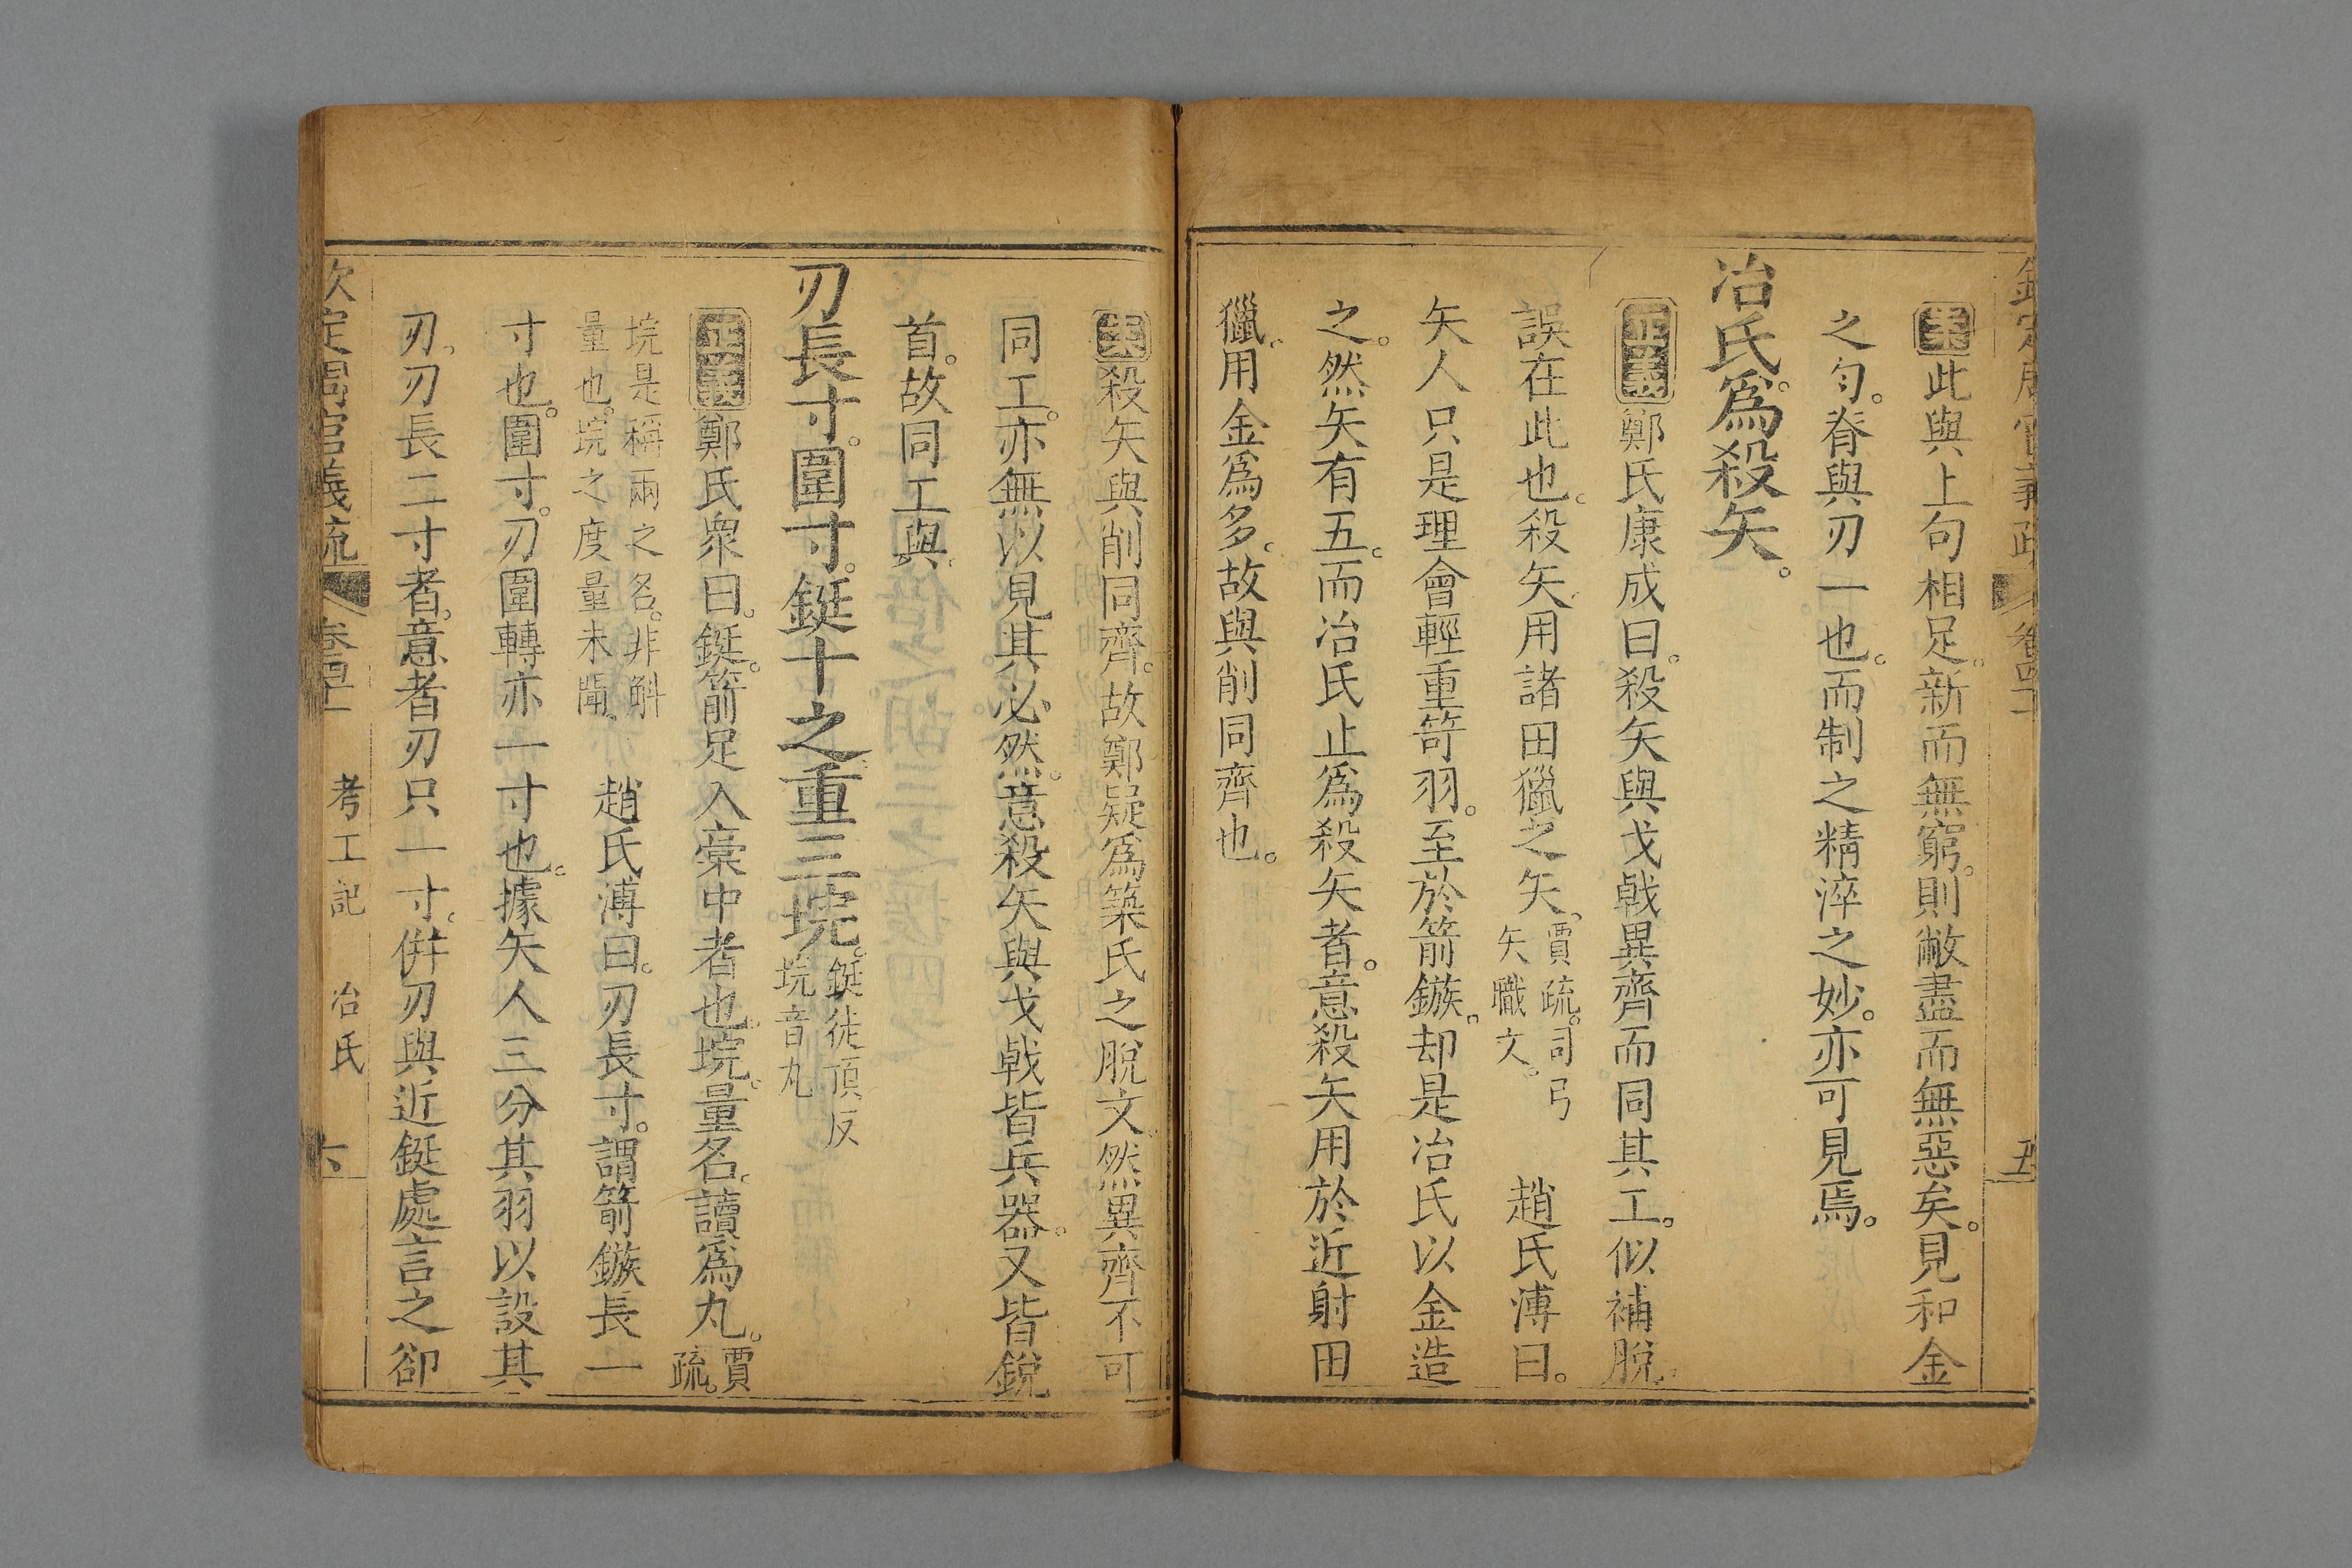 案此與上句相足。新而無窮。則敝盡而無惡矣。見和金
之勻。脊與刃一也。而制之精淬之妙。亦可見焉。
冶氏。爲殺矢。
正義鄭氏康成曰。殺矢與戈戟異齊而同其工。似補脫
誤在此也。殺矢用諸田獵之矢。賈疏。司弓矢職文。趙氏溥曰。
矢人只是理會輕重笴羽。至於箭鏃。却是冶氏以金造
之。然矢有五。而冶氏止爲殺矢者。意殺矢用於近射田
獵。用金爲多。故與削同齊也。
案殺矢與削同齊。故鄭疑爲築氏之脫文。然異齊不可
同工。亦無以見其必然。意殺矢與戈戟皆兵器。又皆銳
首。故同工與。
刃長寸。圍寸。鋌十之。重三垸。鋌徒頂反垸音丸
正義鄭氏衆曰。鋌。箭足入槀中者也。垸。量名。讀爲丸。賈疏。
垸是稱兩之名。非斛量也。垸之度量未聞。趙氏溥曰。刃長寸。謂箭鏃長一
寸也。圍寸。刃圍轉亦一寸也。據矢人三分其羽以設其
刃。刃長二寸者。意者刃只一寸。倂刃與近鋌處言之卻
欽定周官義疏 卷四十 考工記 冶氏